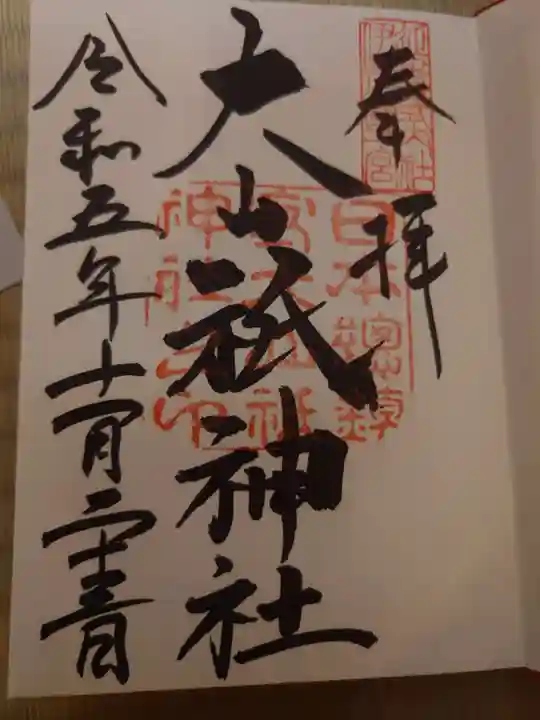 奉拝
大山祇神社
令和五年十一月二十
日本總鎮
守大山祇
神社之印